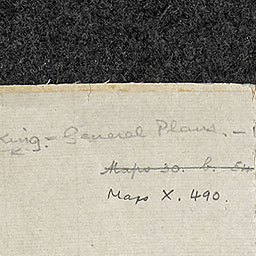 king. - General Plans. -
Maps 30. b. 54
Maps X. 490.